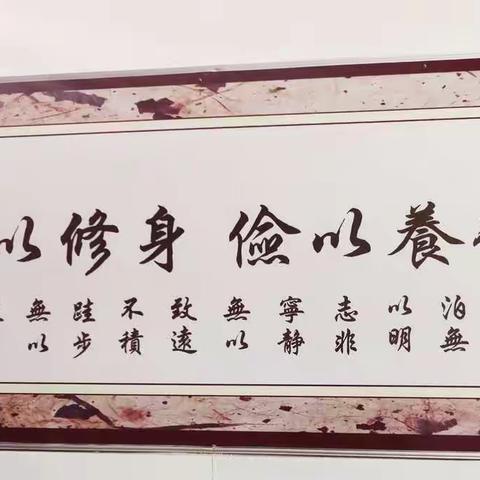 以修身 儉以養
泊無
以明
志非
寧静
無以
致遠
不積
跬步
無以